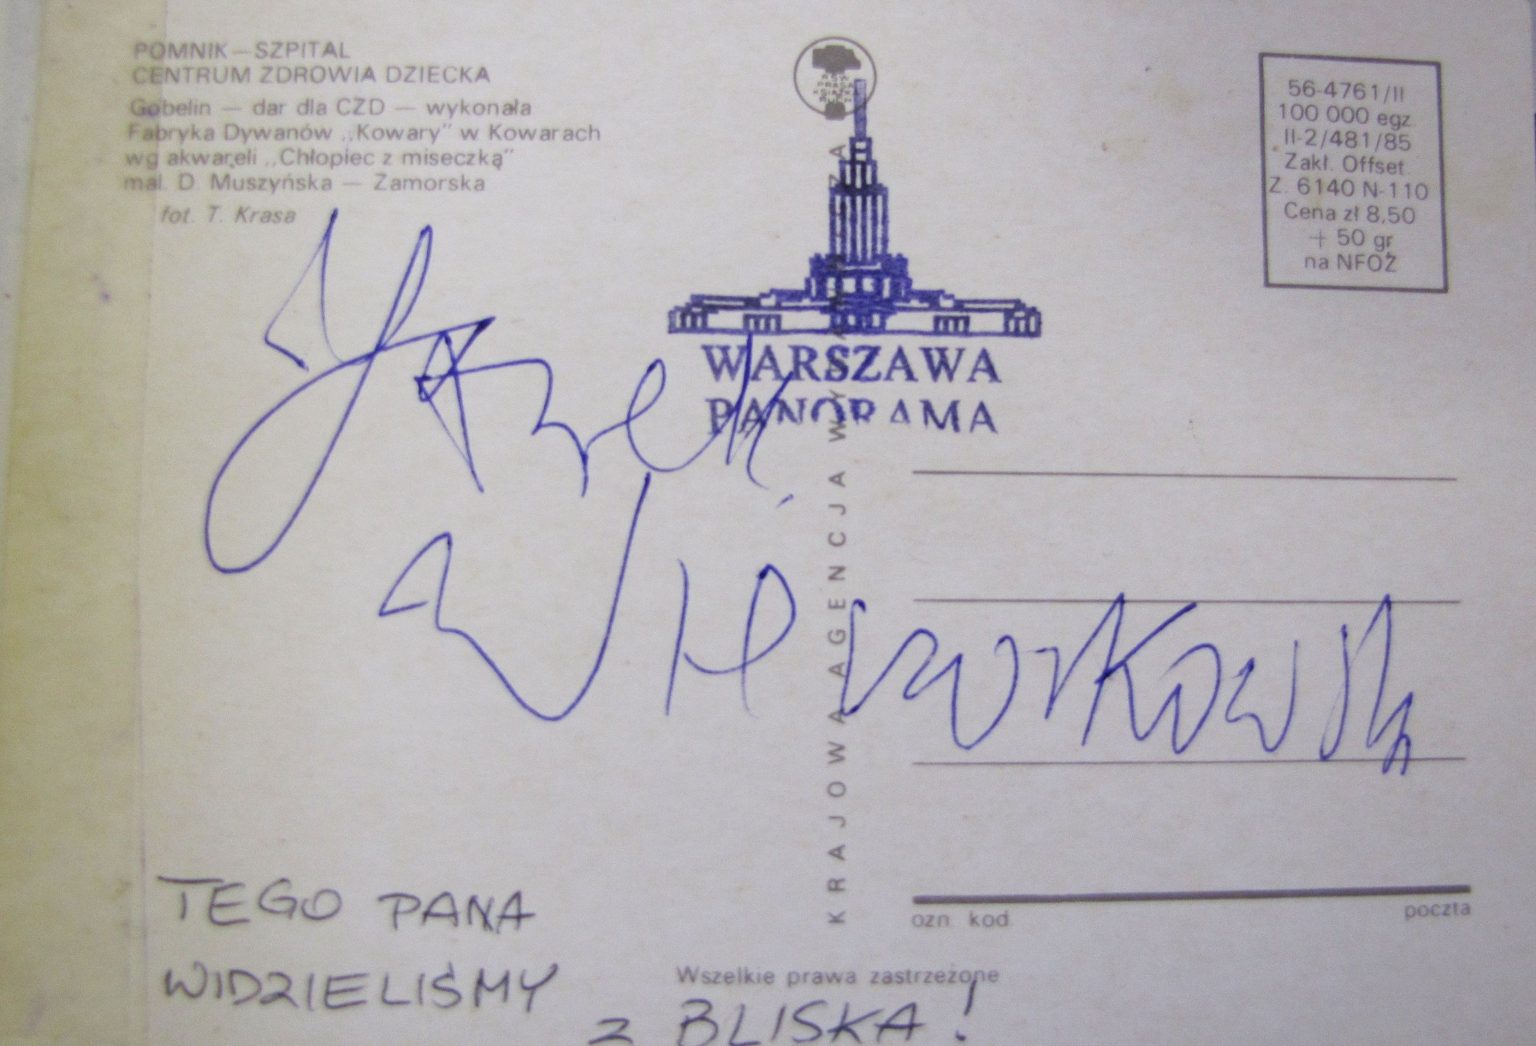 POMNIK — SZPITAL
CENTRUM ZDROWIA DZIECKA
Gobelin — dar dla CZD — wykonała
Fabryka Dywanów „Kowary” w Kowarach
wg akwareli „Chłopiec z miseczką”
mal. D. Muszyńska — Zamorska
fot. T. Krasa
WARSZAWA
PANORAMA
56-4761/II
100 000 egz.
II-2/481/85
Zakł. Offset
Z. 6140 N-110
Cena zł 8,50
+ 50 gr
na NFOZ
KRAJOWA AGENCJA
ozn. kod
poczta
Wszelkie prawa zastrzeżone
TEGO PANA
WIDZIELIŚMY
z BLISKA!